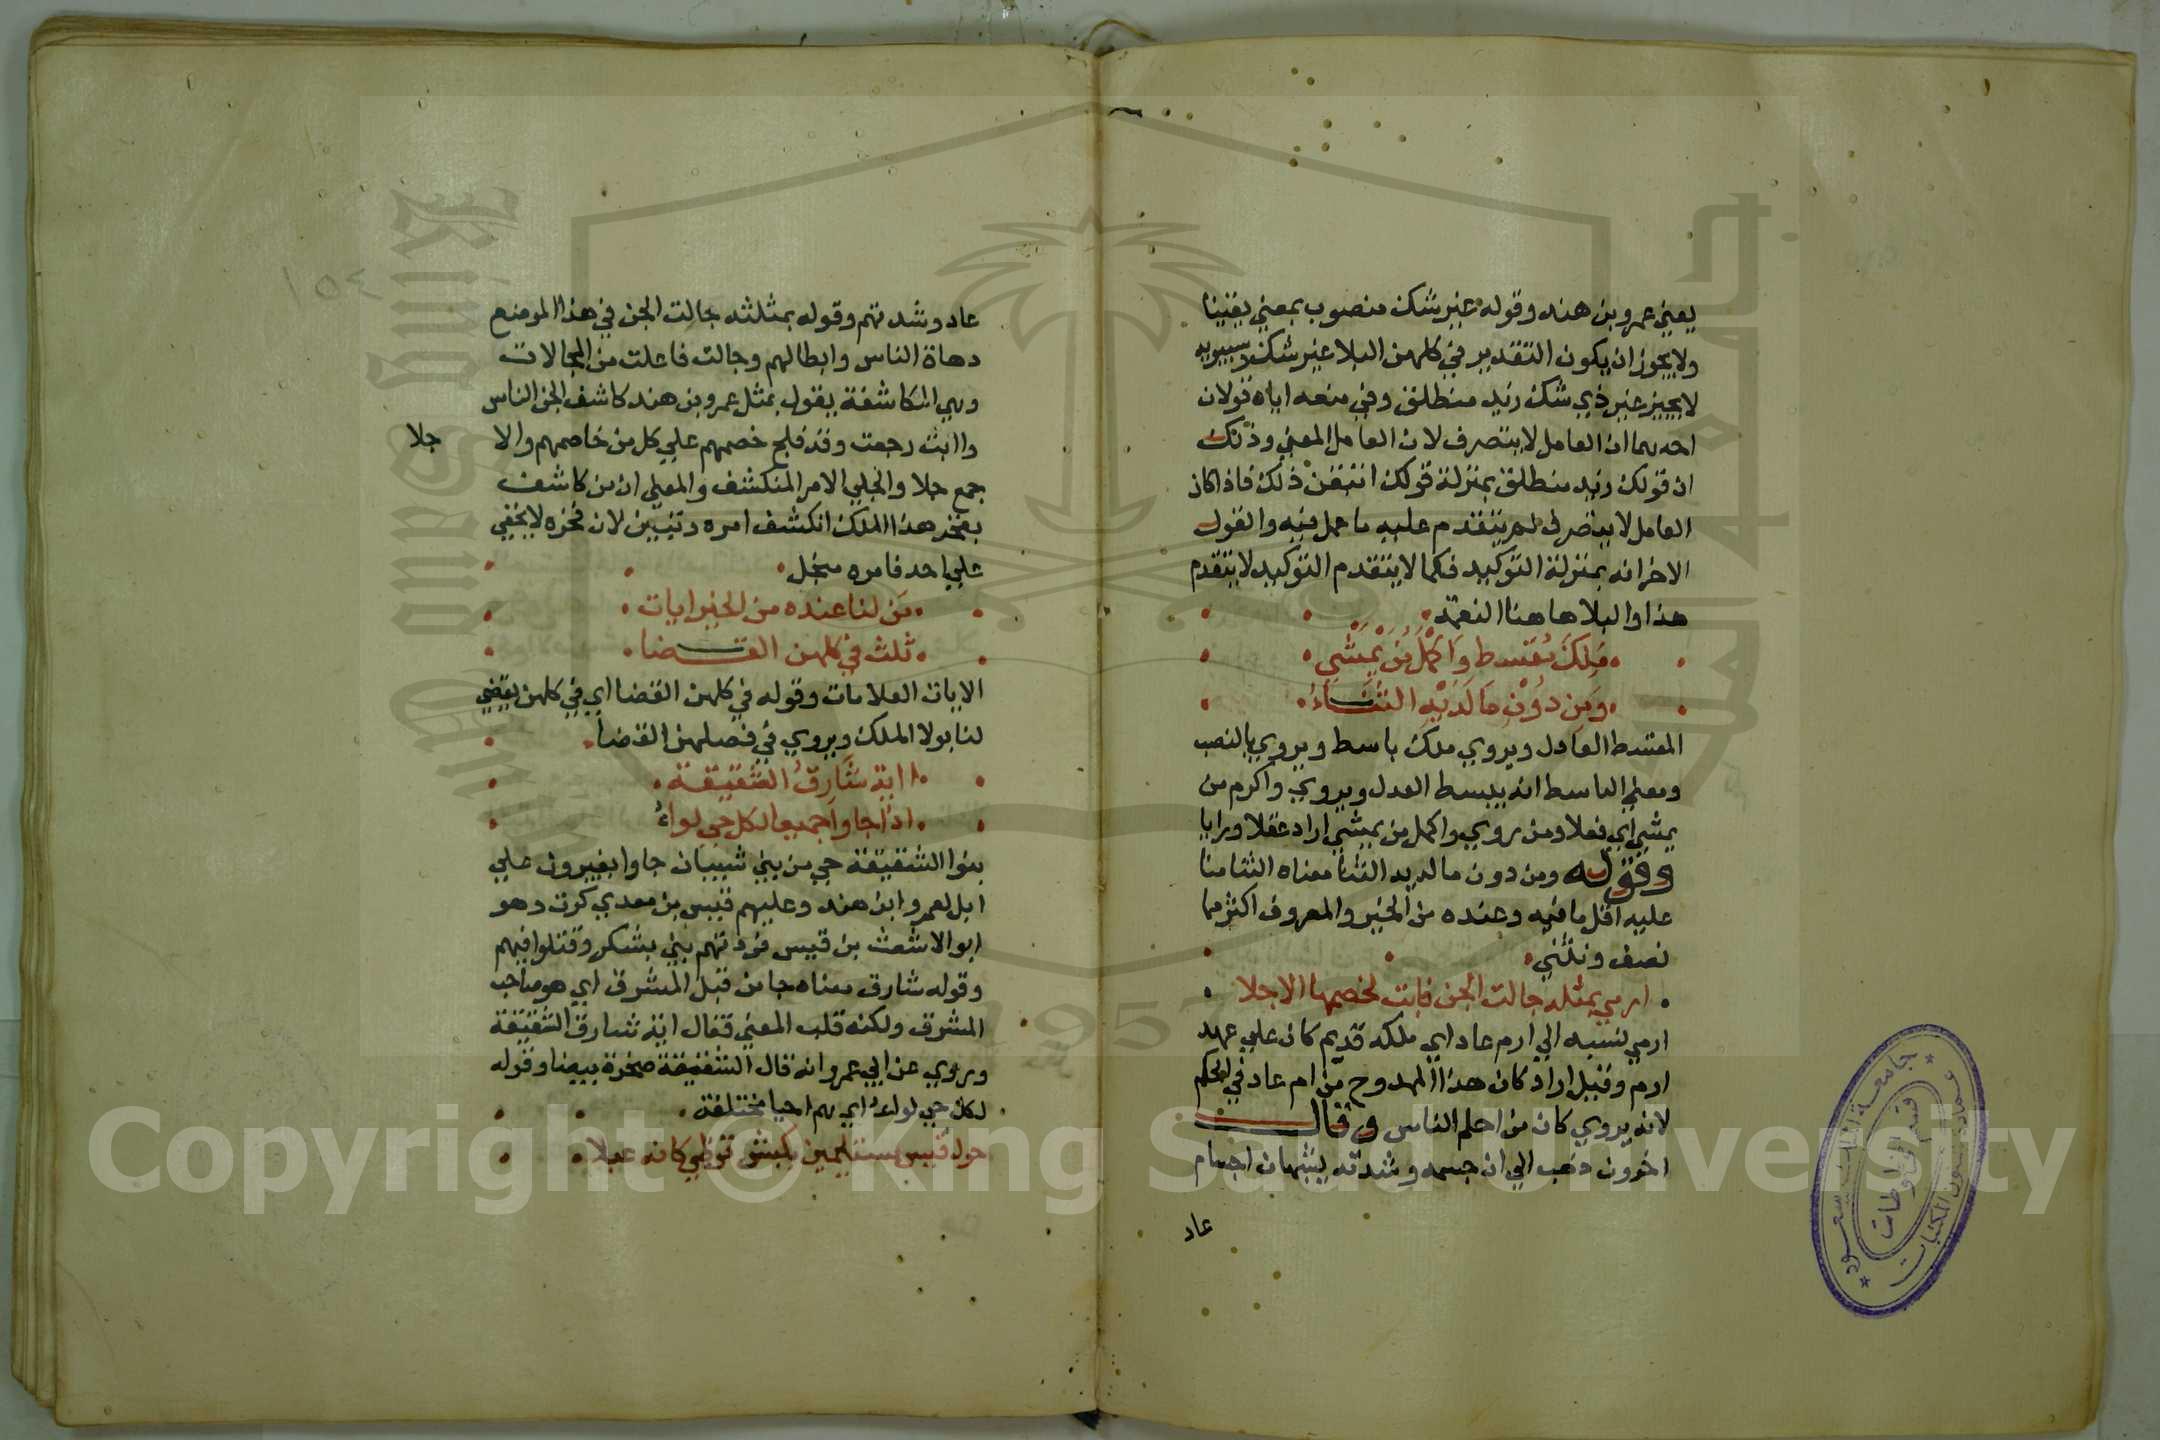 يعني عمرو بن هند وقوله غير شك منصوب بمعني يقينا
ولا يجوز ان يكون التقدير في كلهن البلا غير شك وسيبويه
لا يجيز غير ذي شك زيد منطلق وفي منعه اياه قولان
احدهما ان العامل لا يتصرف لان العامل المعني وذلك
ان قولك زيد منطلق بمنزلة قولك اتيقن ذلك فاذا كان
العامل لا يتصرف لم يتقدم عليه ما عمل فيه والقول
الاخر انه بمنزلة التوكيد فكما لا يتقدم التوكيد لا يتقدم
هذا والبلا هاهنا النعمة
مَلِكٌ مُقسط وَاكْمَلُ مَن يَمشي
وَمِن دوُنْ مَا لَدَيْهِ الثَّنَاءُ
المقسط العادل ويروي ملك باسط ويروي بالنصب
ومعني الباسط انه يبسط العدل ويروي واكرم من
يمشي اي فعلا ومن روي واكمل من يمشي اراد عقلا ورايا
وقوله ومن دون ما لديه الثنا معناه الثنا منا
عليه اقل ما فيه وعنده من الخير والمعروف اكثر مما
نصف ونثني
ارمي بمثله جالت الجن فابت لخصمها الاجلا
ارمي نسبه الي ارم عاد اي ملكه قديم كان علي عهد
ارم وقيل اراد كان هذا الممدوح من ام عاد في الحكم
لانه يروي كان من احلم الناس وقال
اخرون ذهب الي ان جسمه وشدته يشبهان اجسام
عاد
١٥٤
عاد وشدتهم وقوله بمثلثه جالت الجن في هذا الموضع
دهاة الناس وابطالهم وجالت فاعلت من المجالات
وهي المكاشفة يقول بمثل عمرو بن هند كاشف الجن الناس
واابت رجعت وقد فلج خصمهم علي كل من خاصمهم والا
جلا
جمع جلا والجلي الامر المنكشف والمعني ان من كاشف
بفخر هذا الملك انكشف امره وتبين لان فخره لا يخفي
علي احد فامره منجل
مَن لنا عنده من الخير ايات
ثلث في كلهن القضا
الايات العلامات وقوله في كلهن القضا اي في كلهن يقضي
لنا بولا الملك ويروي في فصلهن القضا
اايةِ شَارِقُ الشقيقة
اذ اجاوا جميعا لكل حي لواءُ
بنوا الشقيقة حي من بني شيبان جاوا يغيرون علي
ابل لعمرو ابن هند وعليهم قيس بن معدي كرت وهو
ابو الاشعث بن قيس فردتهم بني يشكر وقتلوا فيهم
وقوله شارق معناه جا من قبل المشرق اي هو صاحب
المشرق ولكنه قلب المعني فقال اية شارق الشقيقة
وروي عن ابي عمرو انه قال الشقيقة صخرة بيضا وقوله
لكل حي لواءُ اي هم احيا مختلفة
حول قيس مستليمين بكبش قرظي كانه عبلا
جامعة الملك سعود
قسم المخطوطات
عمادة شؤون المكتبات
Copyright © King Saud University
1957